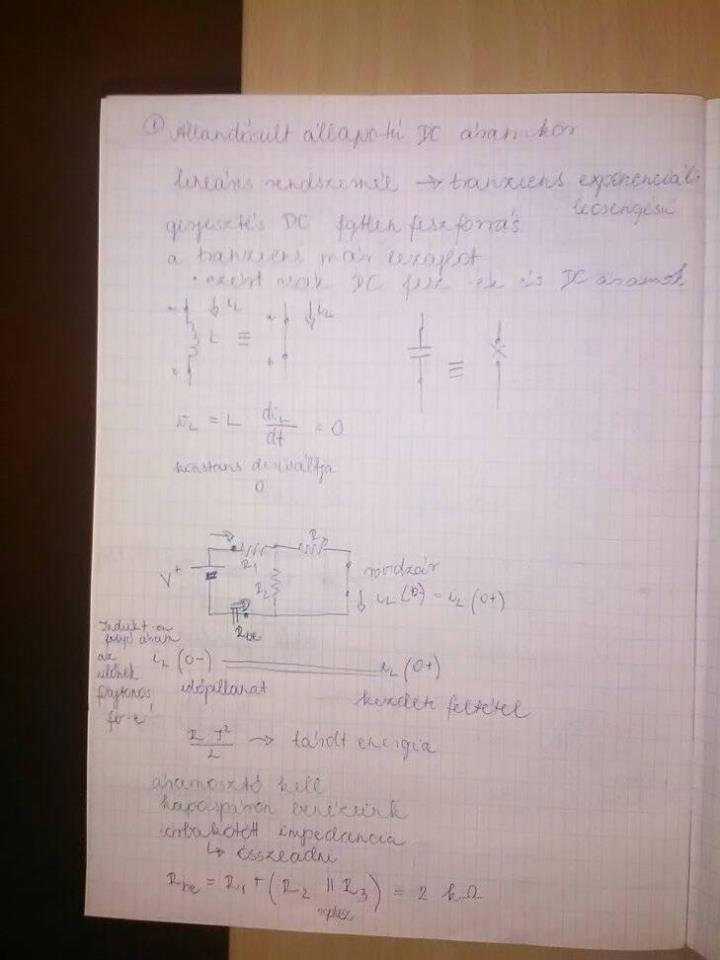 ① Állandósult állapotú DC áramkör
lineáris rendszernél → tranxiens exponenciális
lecsengésű
gerjesztés DC fgtlen feszforrás
a tranxiens már lezajlott
• ezért csak DC fesz.-ek és DC áramok
iL L ≡ iL
≡
uL = L diL/dt = 0
konstans deriváltja
0
R1 R3
V + R2 rövidzár
iL(0-) = iL(0+)
Rbe
Indukt-on
folyó áram
az
időnek
folytonos
fv-e!
iL(0-) iL(0+)
időpillanat kezdeti feltétel
→ tárolt energia
áramosztó kell
kapocspáron benézünk
sorbakötött impedancia
↳ összeadni
Rbe = R1 + (R2 || R3) = 2 kΩ
replusz